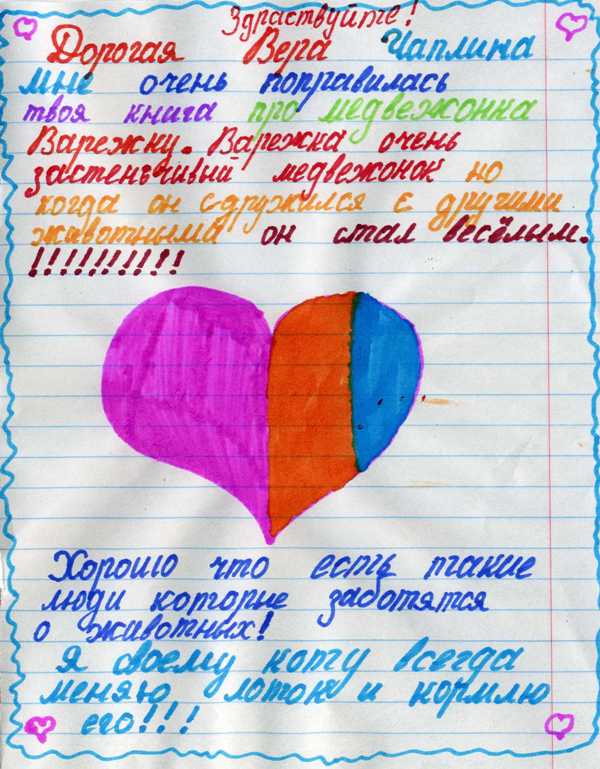 Здраствуйте!
Дорогая Вера Чаплина
мне очень понравилась
твоя книга про медвежонка
Варежку. Варежка очень
застенчивый медвежонок но
когда он сдружился с другими
животными он стал весёлым.
!!!!!!!!!!
Хорошо что есть такие
люди которые заботятся
о животных!
Я своему коту всегда
меняю лоток и кормлю
его!!!